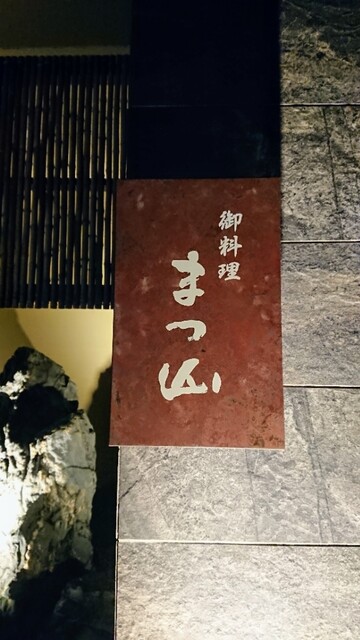 御料理
まつ山